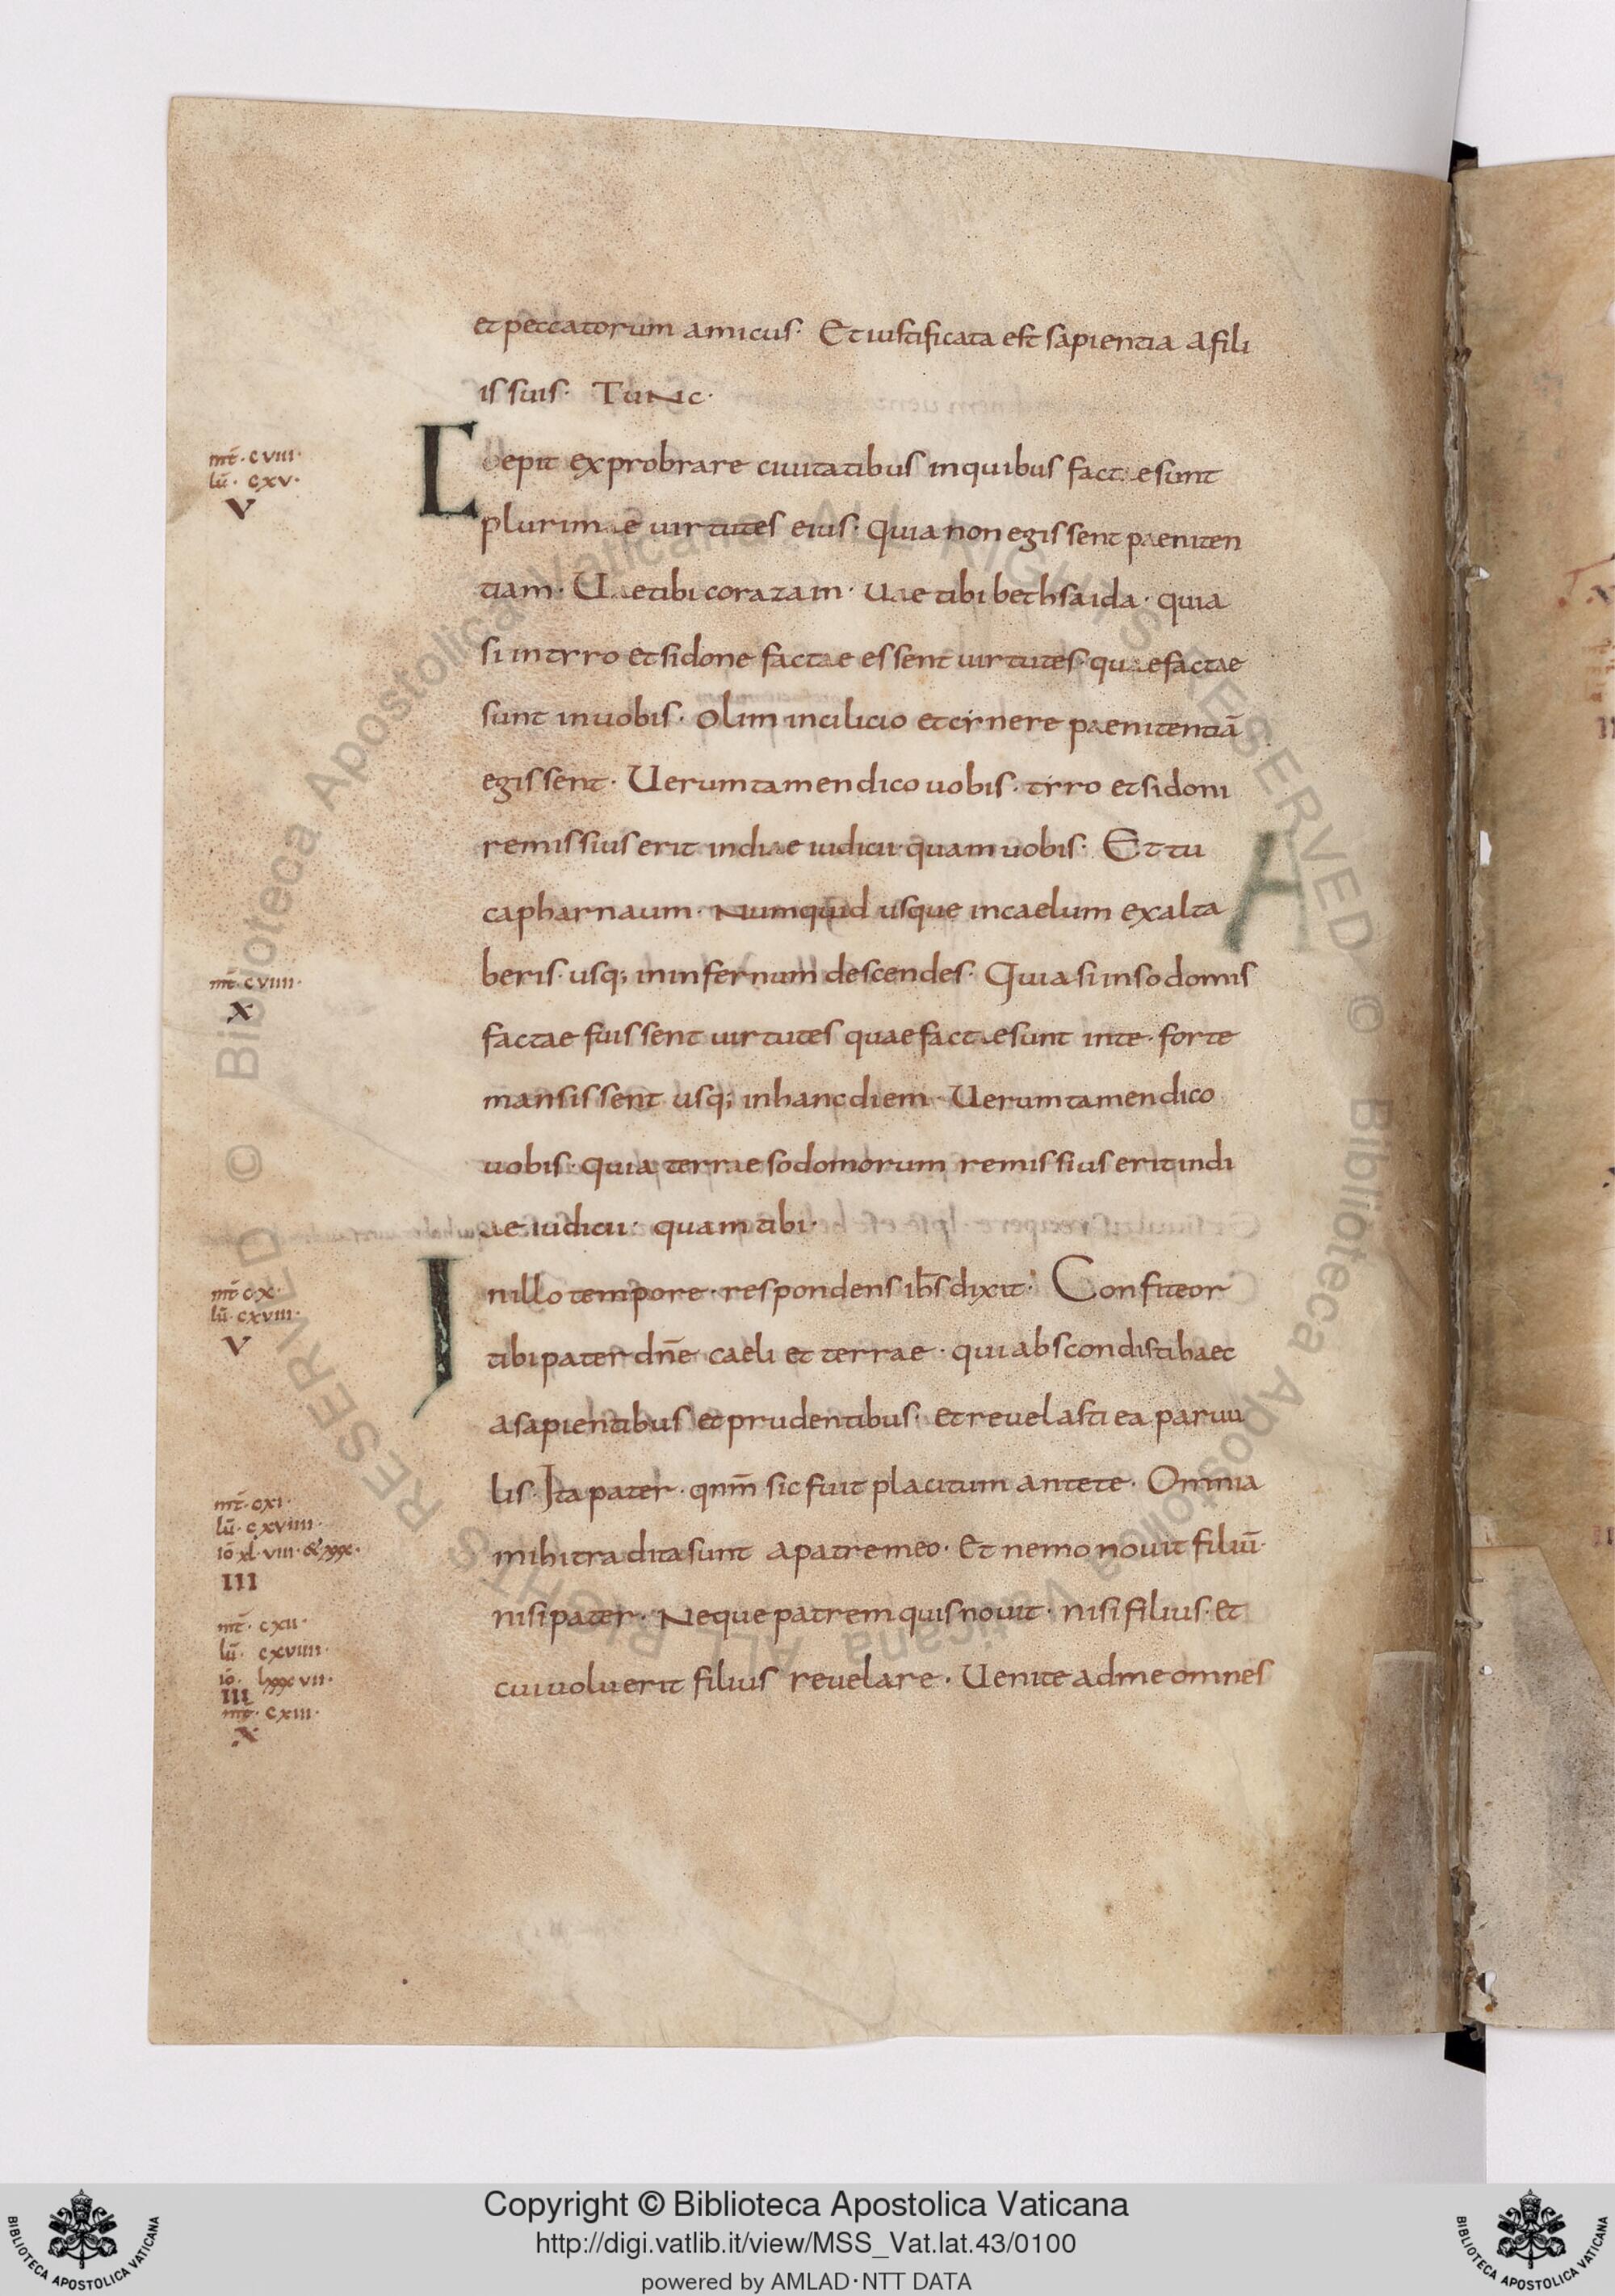 et peccatorum amicus· Et iustificata est sapientia a fili
is suis· Tunc·
mt̄· cviii·
lū· cxv·
v
Coepit exprobrare ciuitatibus in quibus factae sunt
plurimae uirtutes eius· quia non egissent paeniten
tiam· Uae tibi corazam· uae tibi bethsaida· quia
si in tyro et sidone factae essent uirtutes· quae factae
sunt in uobis· olim in cilicio et cinere paenitentiā
egissent· Uerumtamen dico uobis· tyro et sidoni
remissius erit in diae iudicii quam uobis· Et tu
capharnaum· Numquid usque in caelum exalta
mt̄· cviiii·
x
beris· usq; in infernum descendes· Quia si in sodomis
factae fuissent uirtutes quae factae sunt in te· forte
mansissent usq; in hanc diem· Uerumtamen dico
uobis· quia terrae sodomorum remissius erit in di
ae iudicii· quam tibi·
mt̄ cx·
lū· cxviii·
v
In illo tempore· respondens ihs̄ dixit· Confiteor
tibi pater dn̄e caeli et terrae· qui abscondisti haec
a sapientibus et prudentibus· et reuelasti ea paruu
lis· Ita pater· qnm̄ sic fuit placitum ante te· Omnia
mt̄· cxi·
lū· cxviiii·
iō xl· viii· & xxx·
iii
mihi tradita sunt a patre meo· Et nemo nouit filiū·
nisi pater· Neque patrem quis nouit· nisi filius· et
cui uoluerit filius reuelare· Uenite ad me omnes
mt̄· cxii·
lū· cxviiii·
iō· lxxxvii·
iii
mt̄· cxiii·
x
Copyright © Biblioteca Apostolica Vaticana
http://digi.vatlib.it/view/MSS_Vat.lat.43/0100
powered by AMLAD·NTT DATA
BIBLIOTECA APOSTOLICA VATICANA
BIBLIOTECA APOSTOLICA VATICANA
© Biblioteca Apostolica Vaticana ALL RIGHTS RESERVED © Biblioteca Apostolica Vaticana ALL RIGHTS RESERVED